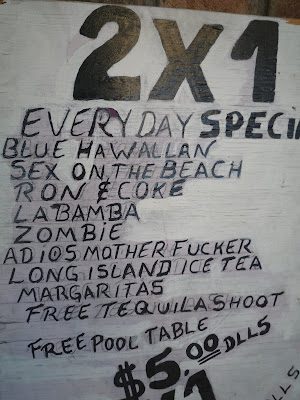 2X1
EVERYDAY SPECI
BLUE HAWALLAN
SEX ON THE BEACH
RON & COKE
LA BAMBA
ZOMBIE
ADIOS MOTHER FUCKER
LONG ISLAND ICE TEA
MARGARITAS
FREE TEQUILA SHOOT
FREE POOL TABLE
$5.00 DLLS